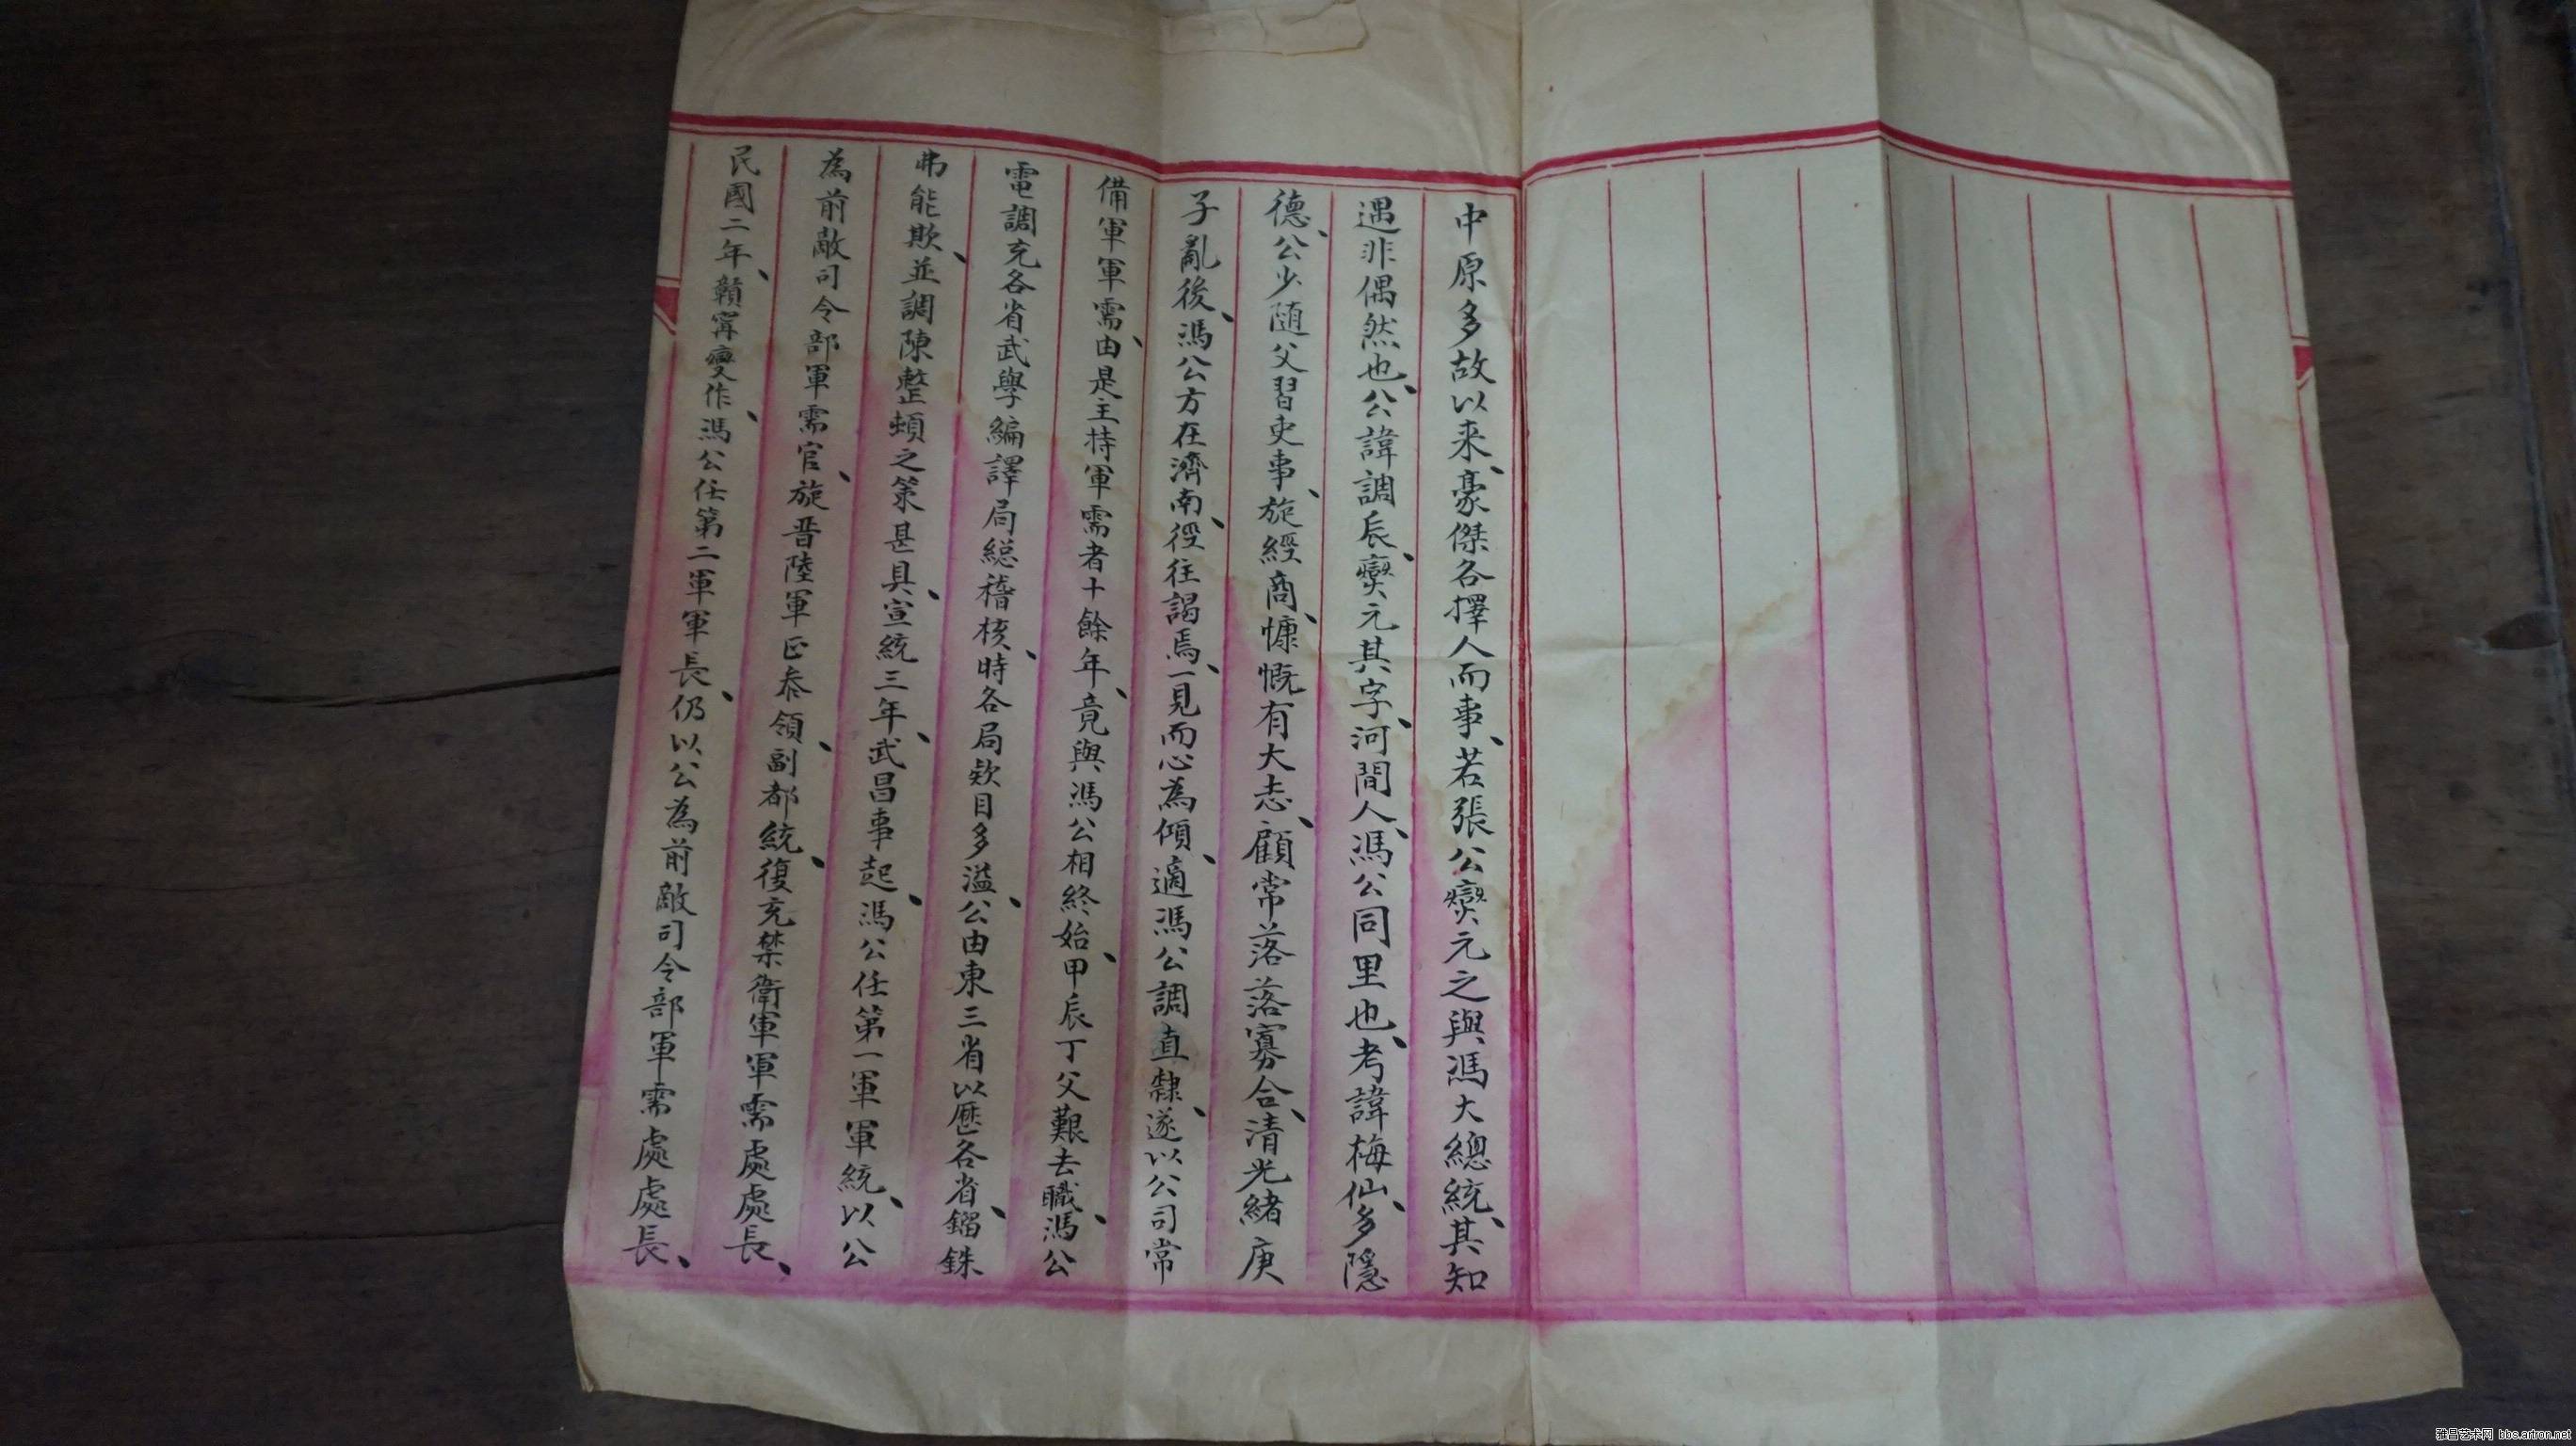 中原多故以来、豪傑各擇人而事、若張公燮元之與馮大總統、其知
遇非偶然也、公諱調辰、燮元其字、河間人、馮公同里也、考諱梅仙、多隱
德、公少随父習吏事、旋經商、慷慨有大志、顧常落落寡合、清光緒庚
子亂後、馮公方在濟南、徑往謁焉、一見而心為傾、適馮公調直隸、遂以公司常
備軍軍需、由是主持軍需者十餘年、竟與馮公相終始、甲辰丁父艱去職、馮公
電調充各省武學編譯局總稽核、時各局欵目多溢、公由東三省以歷各省、鎦銖
弗能欺、並調陳整頓之策甚具、宣統三年、武昌事起、馮公任第一軍軍統、以公
為前敵司令部軍需官、旋晋陸軍正叅領、副都統、復充禁衛軍軍需處處長、
民國二年、贛寗變作、馮公任第二軍軍長、仍以公為前敵司令部軍需處處長、
雅昌艺术网 bbs.artron.net